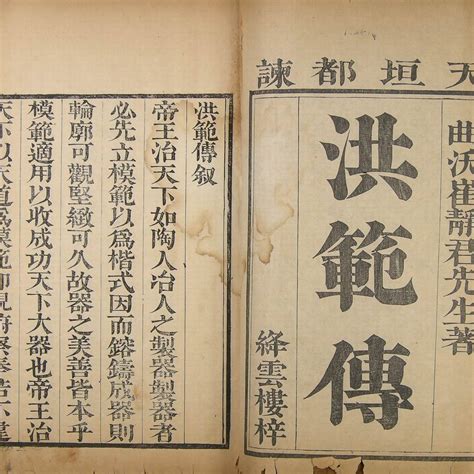 天垣都諫
曲沃崔靜君先生著
洪範傳
絳雲樓梓
洪範傳叙
帝王治天下如陶人冶人之製器製器者
必先立模範以爲楷式因而鎔鑄成器則
輪廓可觀堅緻可久故器之美善皆本乎
模範適用以收成功天下大器也帝王治
天下以天道爲模範